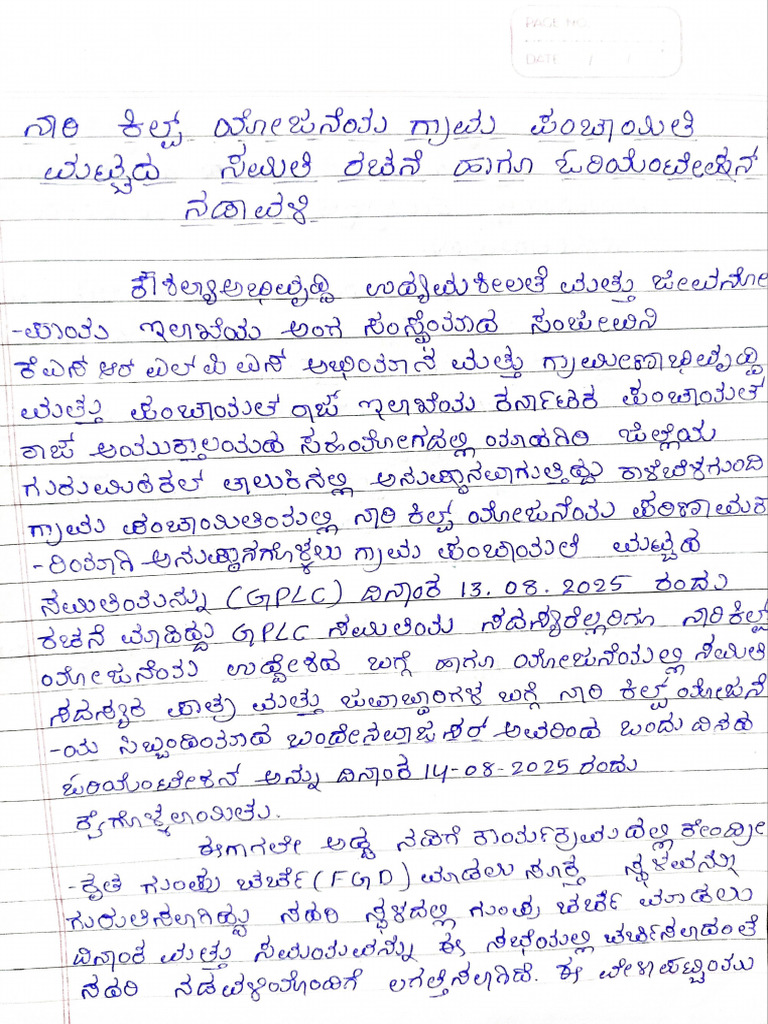 PAGE NO.
DATE / /
ನಾರಿ ಕಿಲ್ಪ್ ಯೋಜನೆಯ ಗ್ರಾಮ ಪಂಚಾಯಿತಿ
ಮಟ್ಟದ ಸಮಿತಿ ರಚನೆ ಹಾಗೂ ಓರಿಯೆಂಟೇಷನ್
ನಡಾವಳಿ
ಕೌಶಲ್ಯಾಅಭಿವೃದ್ದಿ ಉದ್ಯಮಶೀಲತೆ ಮತ್ತು ಜೀವನೋ
-ಪಾಯ ಇಲಾಖೆಯ ಅಂಗ ಸಂಸ್ಥೆಯಾದ ಸಂಜೀವಿನಿ
ಕೆಎಸ್ ಆರ್ ಎಲ್ ಪಿ ಎಸ್ ಅಭಿಯಾನ ಮತ್ತು ಗ್ರಾಮೀಣಾಭಿವೃದ್ದಿ
ಮತ್ತು ಪಂಚಾಯತ ರಾಜ್ ಇಲಾಖೆಯ ಕರ್ನಾಟಕ ಪಂಚಾಯತ್
ರಾಜ್ ಆಯುಕ್ತಾಲಯದ ಸಹಯೋಗದಲ್ಲಿ ಯಾದಗಿರಿ ಜಿಲ್ಲೆಯ
ಗುರುಮಿಠಕಲ್ ತಾಲುಕಿನಲ್ಲಿ ಅನುಷ್ಠಾನವಾಗುತ್ತಿದ್ದು ಕಾಳೆಬೆಳಗುಂದಿ
ಗ್ರಾಮ ಪಂಚಾಯಿತಿಯಲ್ಲಿ ನಾರಿ ಕಿಲ್ಪ್ ಯೋಜನೆಯ ಪರಿಣಾಮಕ
-ರಿಯಾಗಿ ಅನುಷ್ಠಾನಗೊಳ್ಳಲು ಗ್ರಾಮ ಪಂಚಾಯತಿ ಮಟ್ಟದ
ಸಮಿತಿಯನ್ನು (GPLC) ದಿನಾಂಕ 13.08.2025 ರಂದು
ರಚನೆ ಮಾಡಿದ್ದು GPLC ಸಮಿತಿಯ ಸದಸ್ಯರೆಲ್ಲರಿಗೂ ನಾರಿ ಕಿಲ್ಪ್
ಯೋಜನೆಯ ಉದ್ದೇಶದ ಬಗ್ಗೆ ಹಾಗೂ ಯೋಜನೆಯಲ್ಲಿ ಸಮಿತಿ
ಸದಸ್ಯರ ಪಾತ್ರ ಮತ್ತು ಜವಾಬ್ದಾರಿಗಳ ಬಗ್ಗೆ ನಾರಿ ಕಿಲ್ಪ್ ಯೋಜನೆ
-ಯ ಸಿಬ್ಬಂದಿಯಾದ ಬಂದೇನವಾಜ ಸರ್ ಅವರಿಂದ ಒಂದು ದಿನದ
ಓರಿಯೆಂಟೇಶನ್ ಅನ್ನು ದಿನಾಂಕ 14-08-2025 ರಂದು
ಕೈಗೊಳ್ಳಲಾಯಿತು.
ಈಗಾಗಲೇ ಅಡ್ಡ ನಡಿಗೆ ಕಾರ್ಯಕ್ರಮದಲ್ಲಿ ಕೇಂದ್ರೀ
-ಕೃತ ಗುಂಪು ಚರ್ಚೆ (FGD) ಮಾಡಲು ಸೂಕ್ತ ಸ್ಥಳವನ್ನು
ಗುರುತಿಸಲಾಗಿದ್ದು ಸದರಿ ಸ್ಥಳದಲ್ಲಿ ಗುಂಪು ಚರ್ಚೆ ಮಾಡಲು
ದಿನಾಂಕ ಮತ್ತು ಸಮಯವನ್ನು ಈ ಸಭೆಯಲ್ಲಿ ಚರ್ಚಿಸಲಾದಂತೆ
ಸದರಿ ನಡವಳಿಯೊಂದಿಗೆ ಲಗತ್ತಿಸಲಾಗಿದೆ. ಈ ವೇಳಾಪಟ್ಟಿಯು